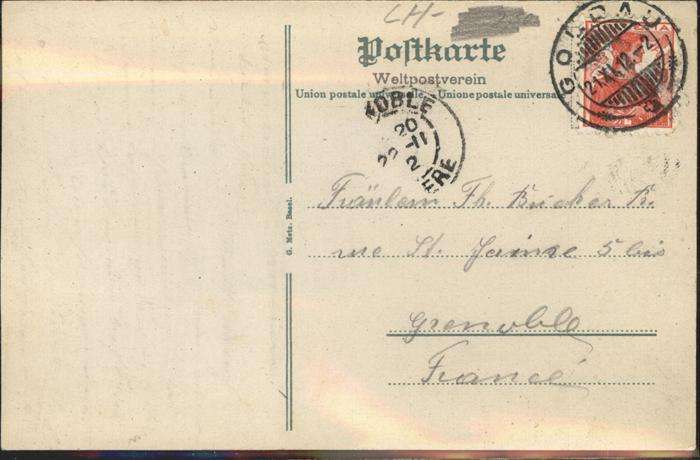 CH-
Postkarte
Weltpostverein
Union postale universelle. - Unione postale universale
GOLDAU
21.XI.12.-2
NOBLE
20
22-11
12
ERE
G. Metz, Basel.
Fräulein Th. Bucher
rue St. 5 bis
Grenoble
France